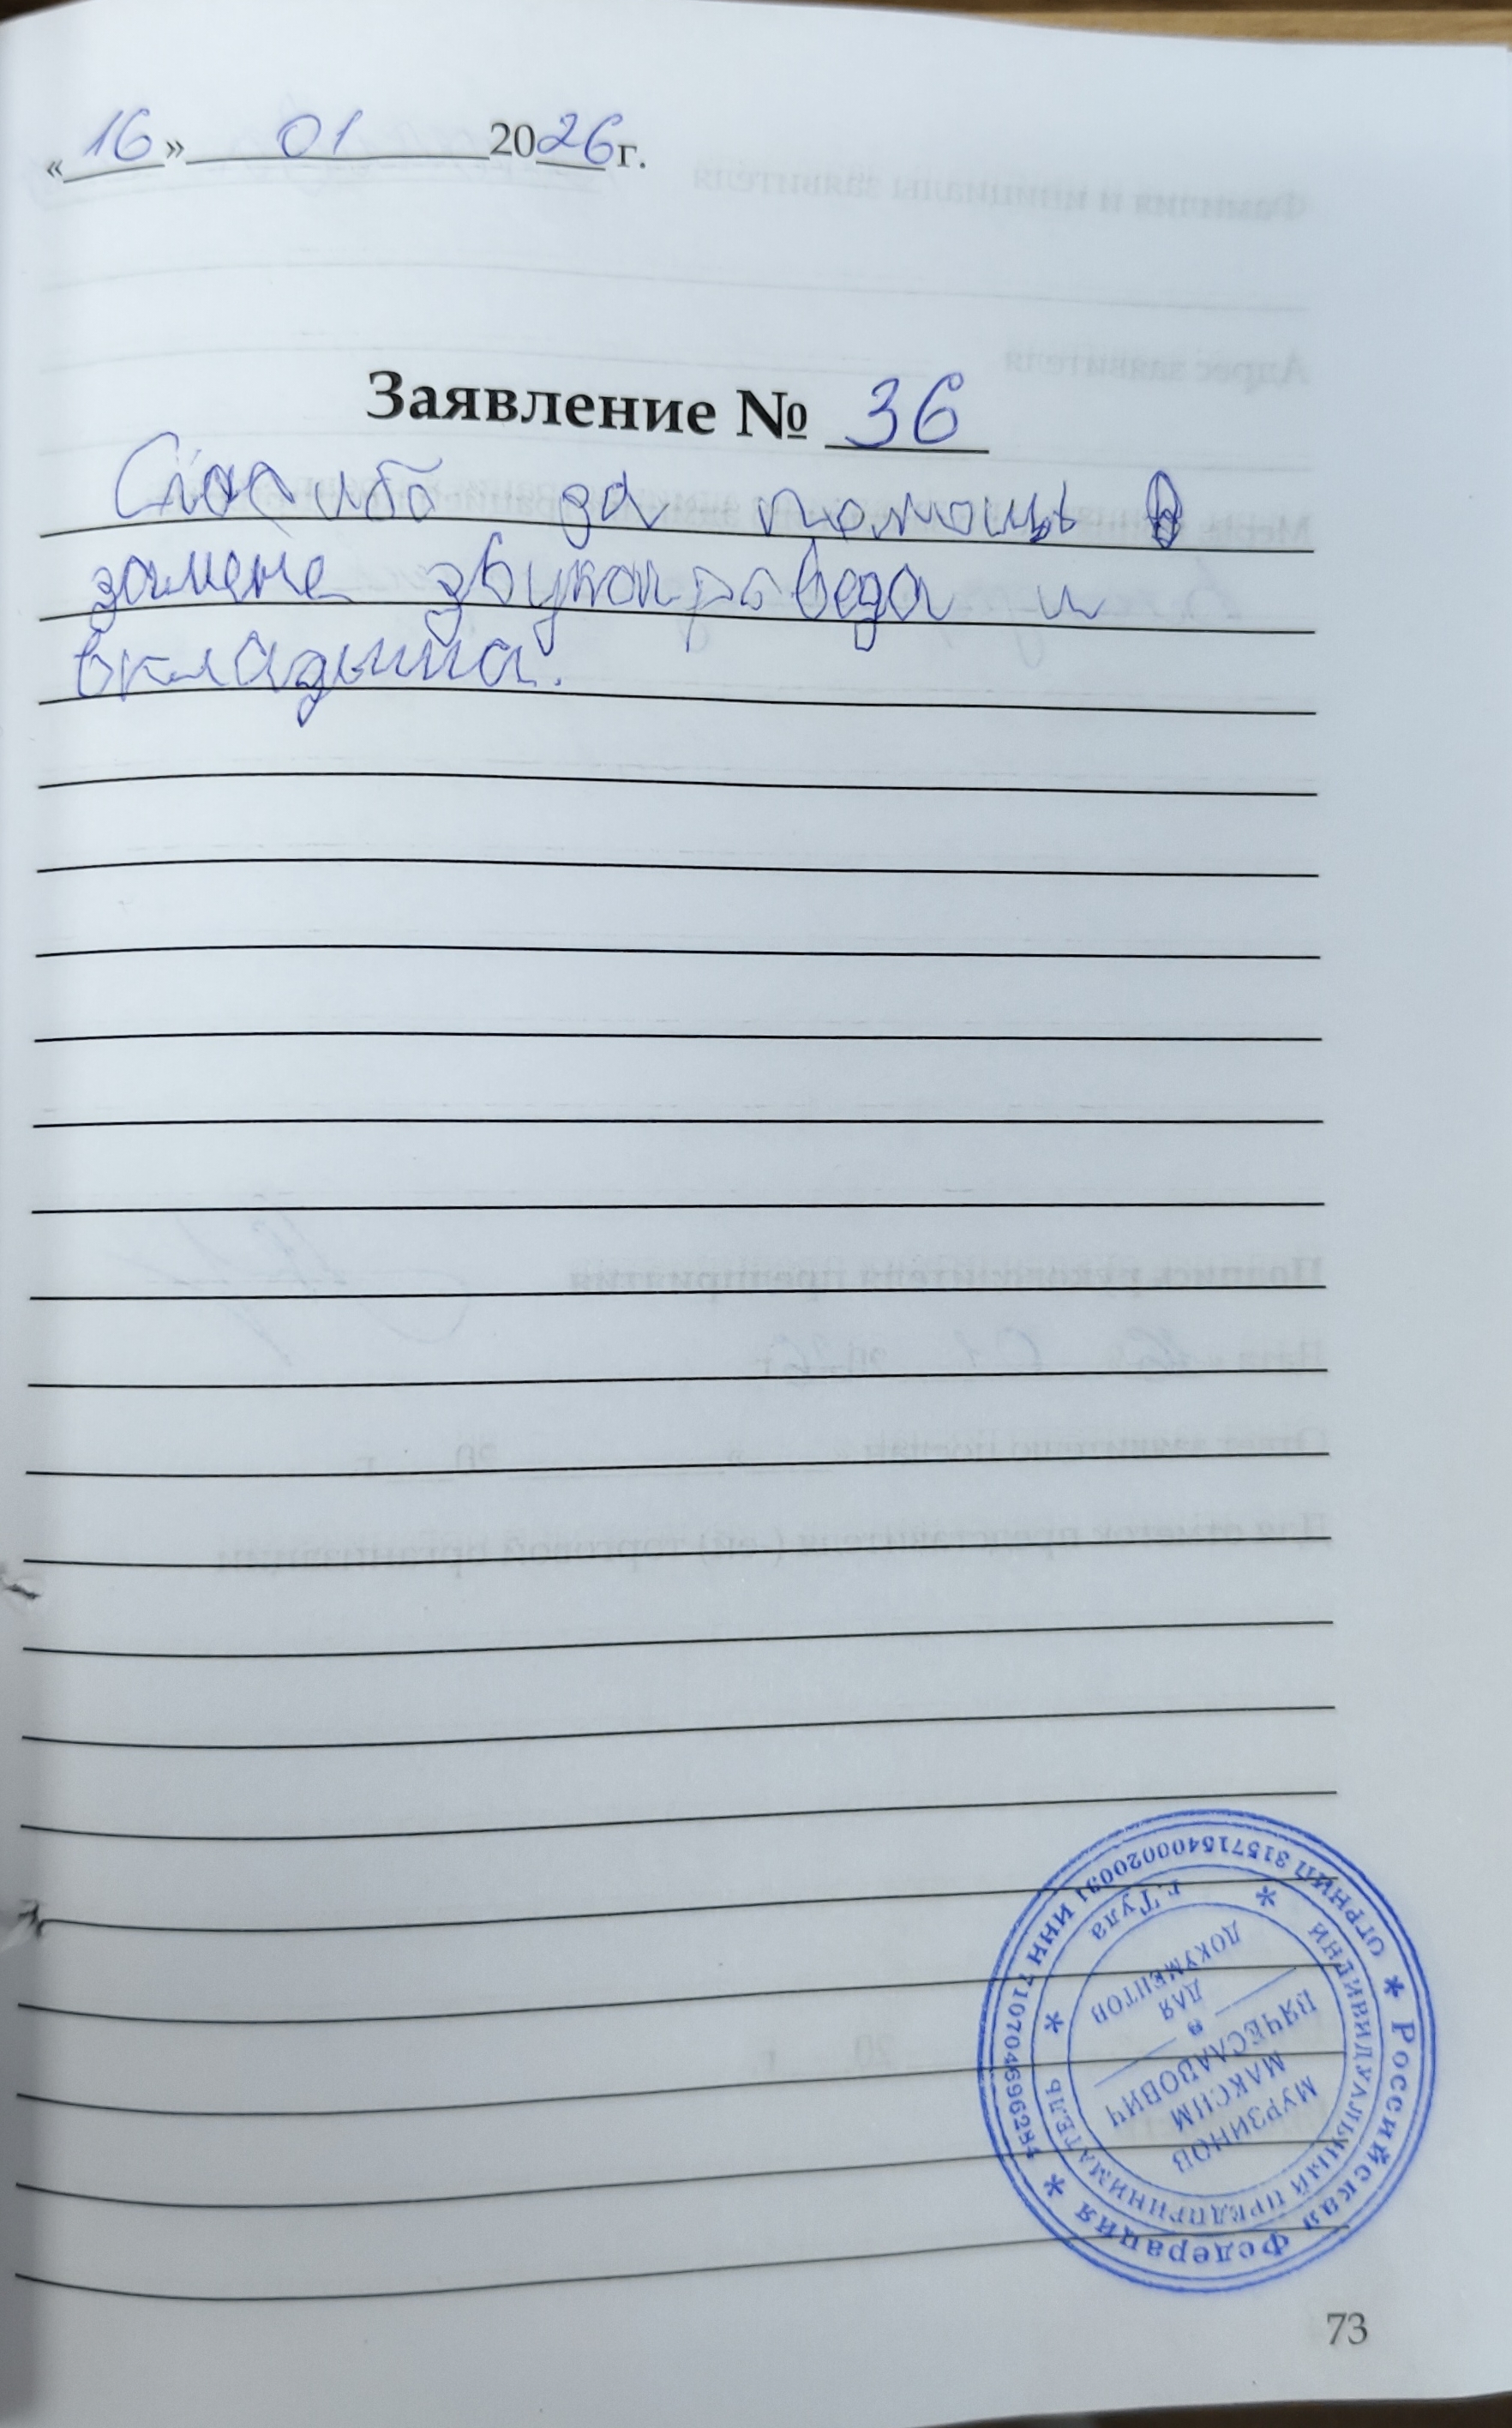 «16» 01 2026г.
Заявление № 36
Спасибо за помощь в
замене звукопровода и
вкладыша.
* Российская Федерация *
ОГРНИП 315715400020091 ИНН 710704696284
ИНДИВИДУАЛЬНЫЙ ПРЕДПРИНИМАТЕЛЬ
* г.Тула *
МУРЗИНОВ
МАКСИМ
ВЯЧЕСЛАВОВИЧ
ДЛЯ
ДОКУМЕНТОВ
73